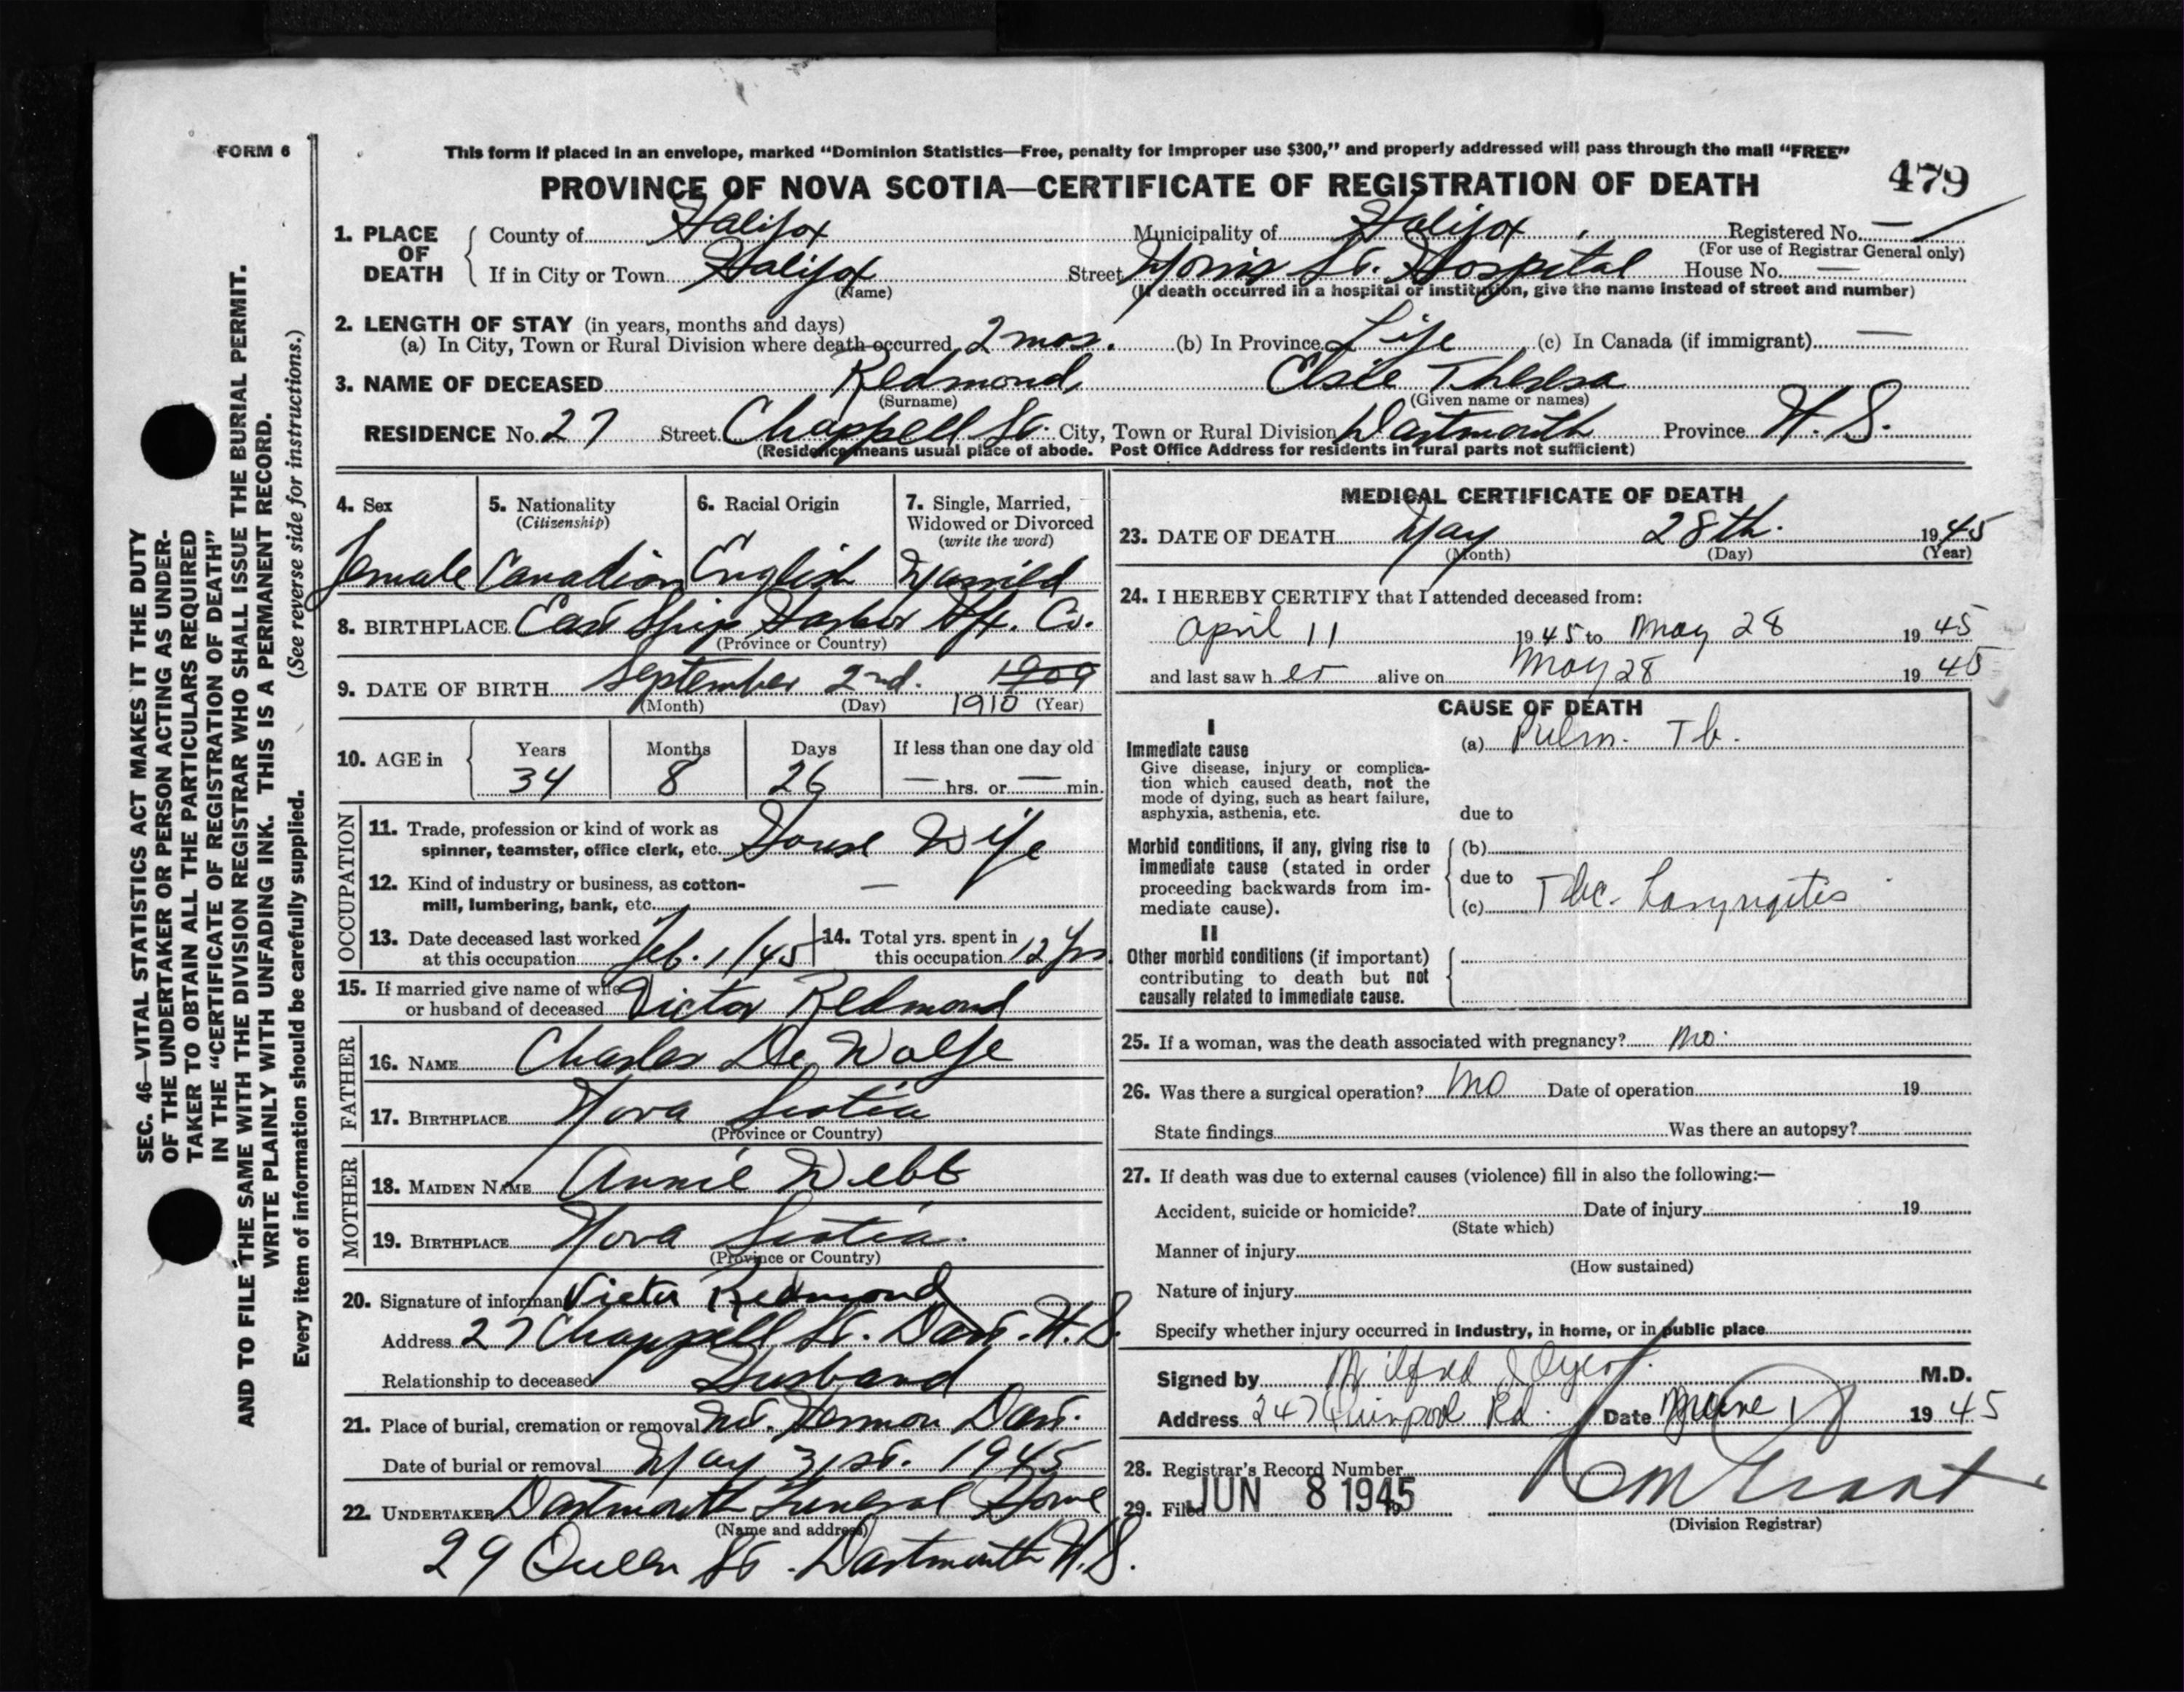 FORM 6
This form if placed in an envelope, marked “Dominion Statistics—Free, penalty for improper use $300,” and properly addressed will pass through the mail “FREE”
PROVINCE OF NOVA SCOTIA—CERTIFICATE OF REGISTRATION OF DEATH 479
1. PLACE OF DEATH
County of Halifax Municipality of Halifax Registered No. —
(For use of Registrar General only)
If in City or Town Halifax Street Morris St. Hospital House No. —
(Name) (If death occurred in a hospital or institution, give the name instead of street and number)
2. LENGTH OF STAY (in years, months and days)
(a) In City, Town or Rural Division where death occurred 2 mos. (b) In Province Life (c) In Canada (if immigrant) —
3. NAME OF DECEASED Redmond, Elsie Theresa
(Surname) (Given name or names)
RESIDENCE No. 27 Street Chappell St. City, Town or Rural Division Dartmouth Province N. S.
(Residence means usual place of abode. Post Office Address for residents in rural parts not sufficient)
4. Sex 5. Nationality 6. Racial Origin 7. Single, Married,
(Citizenship) Widowed or Divorced
(write the word)
Female Canadian English Married
8. BIRTHPLACE East Ship Harbor Hfx. Co.
(Province or Country)
9. DATE OF BIRTH September 2nd. 1909
(Month) (Day) 1910 (Year)
10. AGE in Years Months Days If less than one day old
34 8 26 — hrs. or — min.
OCCUPATION
11. Trade, profession or kind of work as
spinner, teamster, office clerk, etc. House Wife
12. Kind of industry or business, as cotton-
mill, lumbering, bank, etc. —
13. Date deceased last worked
at this occupation Feb. 1/45
14. Total yrs. spent in
this occupation 12 yrs.
15. If married give name of wife
or husband of deceased Victor Redmond
FATHER
16. NAME Charles De Wolfe
17. BIRTHPLACE Nova Scotia
(Province or Country)
MOTHER
18. MAIDEN NAME Annie Webb
19. BIRTHPLACE Nova Scotia.
(Province or Country)
20. Signature of informant Victor Redmond
Address 27 Chappell St. Dart. N. S.
Relationship to deceased Husband
21. Place of burial, cremation or removal Mt. Hermon Dart.
Date of burial or removal May 31st. 1945
22. UNDERTAKER Dartmouth Funeral Home
(Name and address)
29 Queen St. Dartmouth N.S.
MEDICAL CERTIFICATE OF DEATH
23. DATE OF DEATH May 28th. 1945
(Month) (Day) (Year)
24. I HEREBY CERTIFY that I attended deceased from:
April 11 1945 to May 28 1945
and last saw her alive on May 28 1945
CAUSE OF DEATH
I
Immediate cause
Give disease, injury or complica-
tion which caused death, not the
mode of dying, such as heart failure,
asphyxia, asthenia, etc.
(a) Pulm. Tb.
due to
Morbid conditions, if any, giving rise to
immediate cause (stated in order
proceeding backwards from im-
mediate cause).
(b)
due to
(c) Tbc. Laryngitis
II
Other morbid conditions (if important)
contributing to death but not
causally related to immediate cause.
25. If a woman, was the death associated with pregnancy? no.
26. Was there a surgical operation? no Date of operation 19
State findings Was there an autopsy?
27. If death was due to external causes (violence) fill in also the following:—
Accident, suicide or homicide? Date of injury 19
(State which)
Manner of injury
(How sustained)
Nature of injury
Specify whether injury occurred in industry, in home, or in public place
Signed by M.D.
Address 247 Quinpool Rd. Date June 1 1945
28. Registrar's Record Number
29. Filed JUN 8 1945 19
(Division Registrar)
SEC. 46—VITAL STATISTICS ACT MAKES IT THE DUTY
OF THE UNDERTAKER OR PERSON ACTING AS UNDER-
TAKER TO OBTAIN ALL THE PARTICULARS REQUIRED
IN THE “CERTIFICATE OF REGISTRATION OF DEATH”
AND TO FILE THE SAME WITH THE DIVISION REGISTRAR WHO SHALL ISSUE THE BURIAL PERMIT.
WRITE PLAINLY WITH UNFADING INK. THIS IS A PERMANENT RECORD.
Every item of information should be carefully supplied. (See reverse side for instructions.)